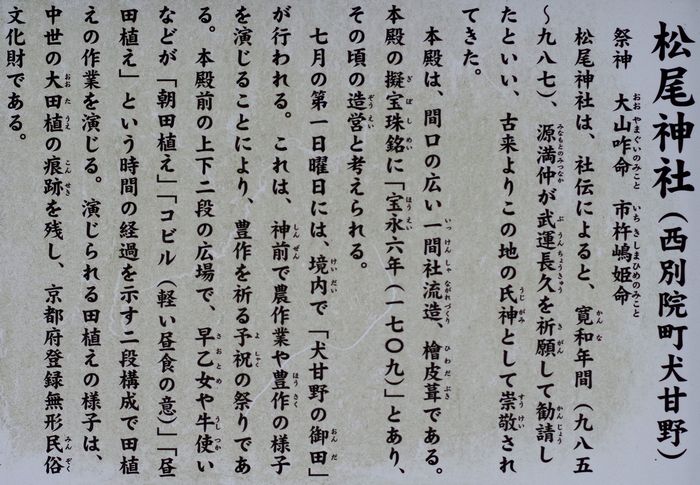 松尾神社（西別院町犬甘野）
祭神　大山咋命　市杵嶋姫命
松尾神社は、社伝によると、寛和年間（九八五
～九八七）、源満仲が武運長久を祈願して勧請し
たといい、古来よりこの地の氏神として崇敬され
てきた。
本殿は、間口の広い一間社流造、檜皮葺である。
本殿の擬宝珠銘に「宝永六年（一七〇九）」とあり、
その頃の造営と考えられる。
七月の第一日曜日には、境内で「犬甘野の御田」
が行われる。これは、神前で農作業や豊作の様子
を演じることにより、豊作を祈る予祝の祭りであ
る。本殿前の上下二段の広場で、早乙女や牛使い
などが「朝田植え」「コビル（軽い昼食の意）」「昼
田植え」という時間の経過を示す二段構成で田植
えの作業を演じる。演じられる田植えの様子は、
中世の大田植の痕跡を残し、京都府登録無形民俗
文化財である。